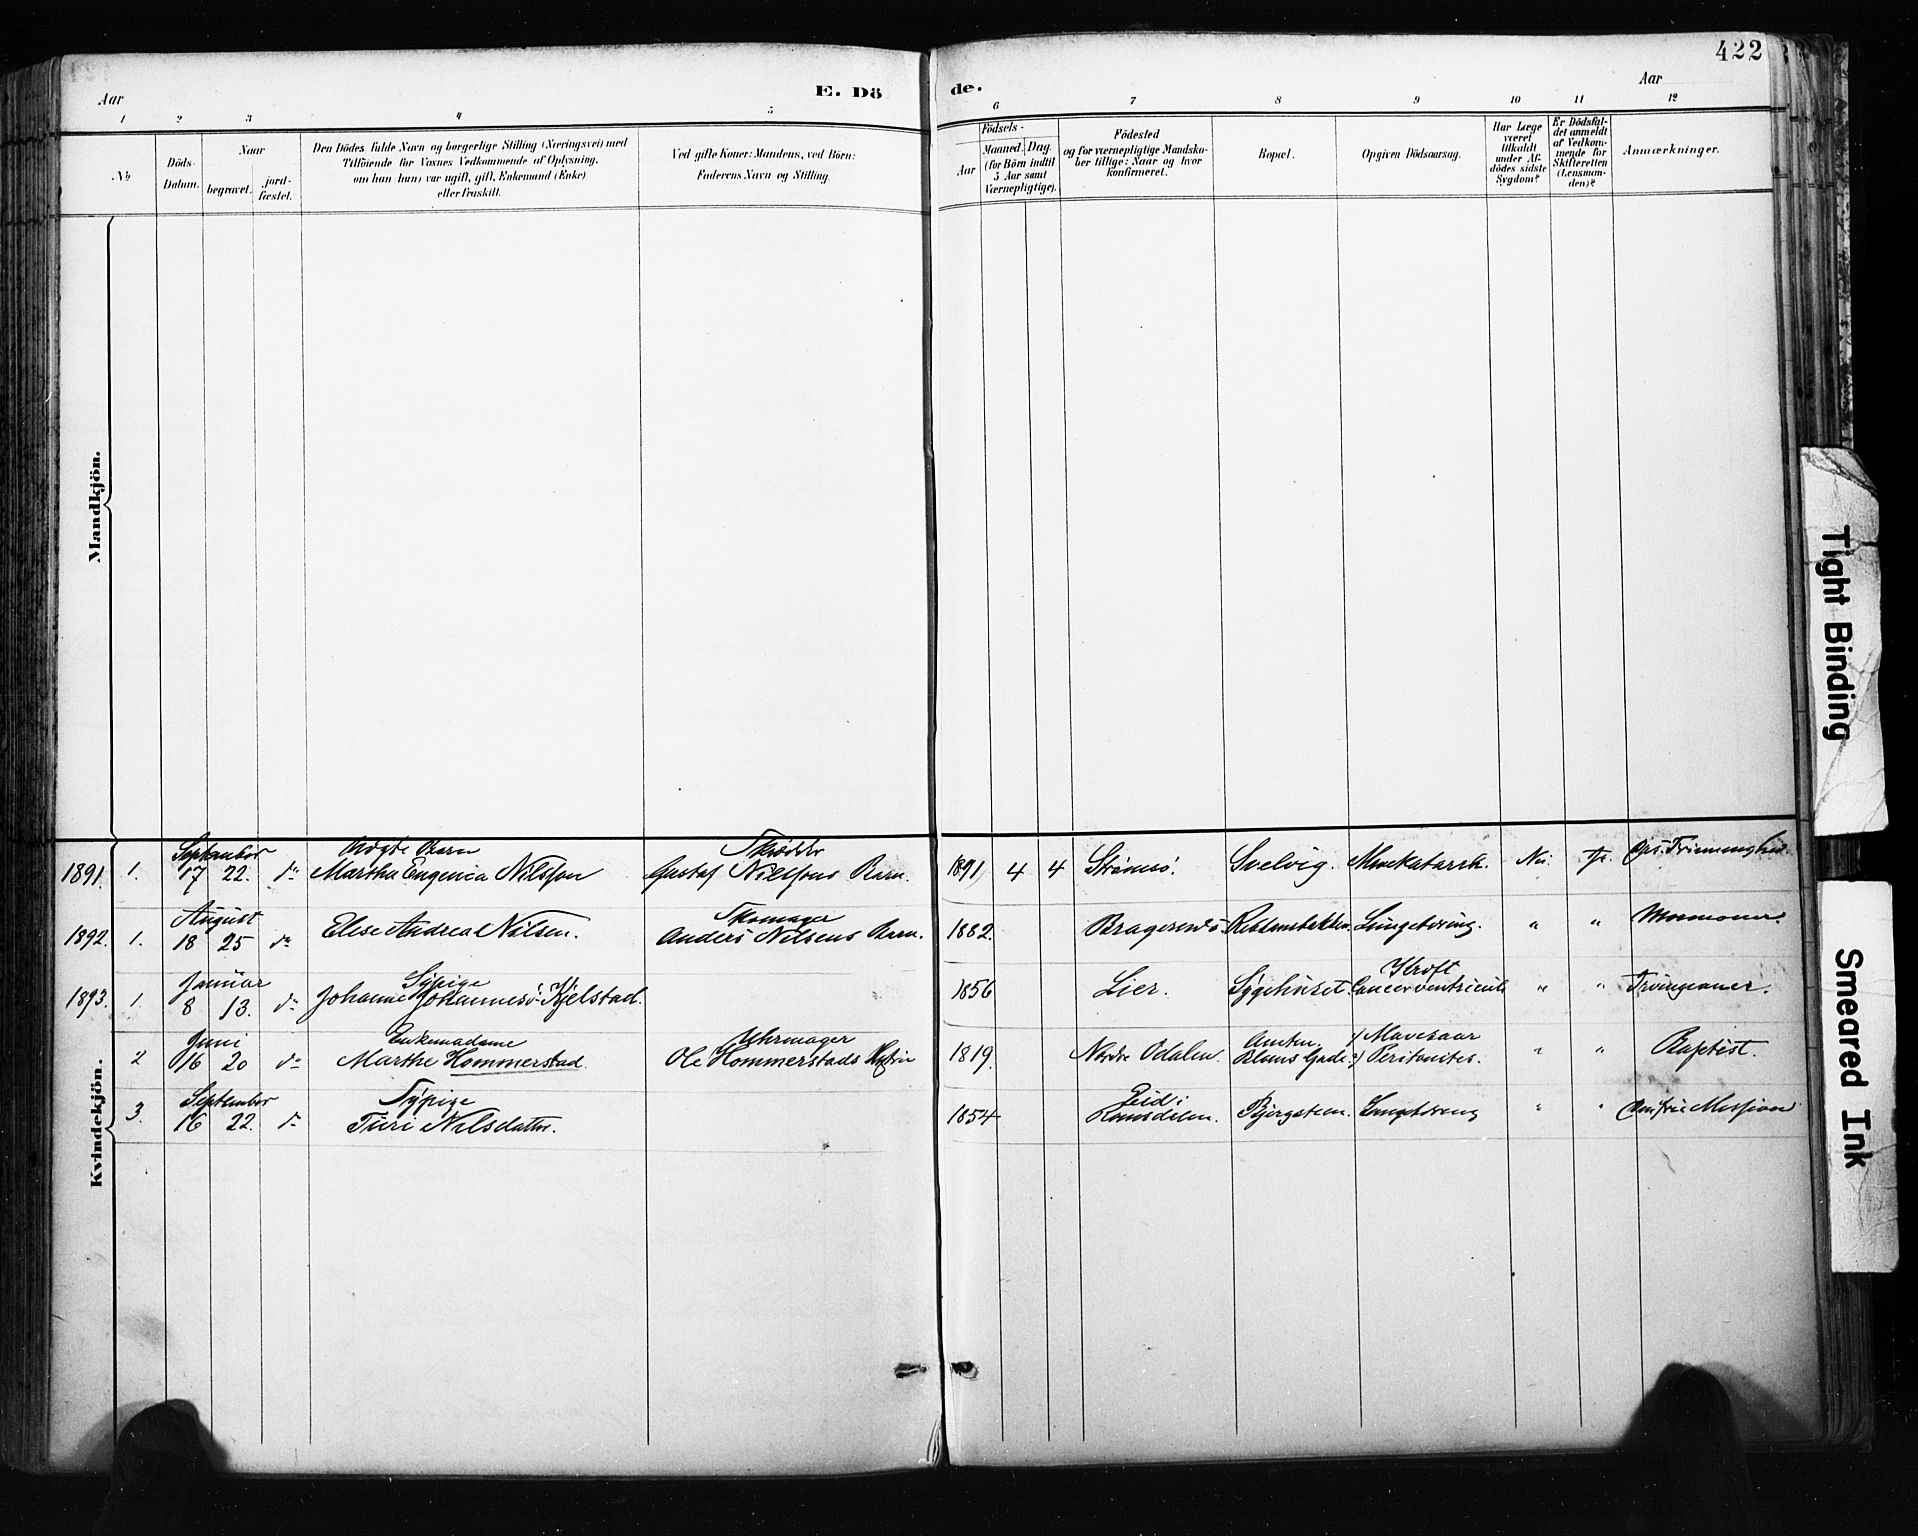 422
Aar
E. Dö
de.
Aar
1 2 3 4 5 6 7 8 9 10 11 12
No
Döds-
Datum.
Naar
begravet.
jord-
fæstet.
Den Dödes fulde Navn og borgerlige Stilling (Næringsvei) med
Tilföiende for Voxnes Vedkommende af Oplysning,
om han (hun) var ugift, gift, Enkemand (Enke)
eller fraskilt.
Ved gifte Koner: Mandens, ved Börn:
Faderens Navn og Stilling.
Födsels-
Aar
Maaned. Dag.
(for Börn indtil
5 Aar samt
Værnepligtige).
Födested
og for værnepligtige Mandska-
ber tillige: Naar og hvor
konfirmeret.
Bopæl.
Opgiven Dödsaarsag.
Har Læge
været
tilkaldt
under Af-
dödes sidste
Sygdom?
Er Dödsfal-
det anmeldt
af Vedkom-
mende for
Skifteretten
(Lensman-
den)?
Anmærkninger.
Mandkjön.
Kvindekjön.
September Ægte Barn
1891. 1. 17 22. do Martha Eugenia Nilsson Gustaf Nilssons Barn. 1891 4 4 Strømsø. Svelvig. Nei. Ja.
August Skomager
1892. 1. 18 25 do Elise Andrea Nilsen. Anders Nilsens Barn. 1882. Bragernes. " " Mormoner.
Januar Sypige
1893. 1. 8 13. do Johanne Johannesd. Kjelstad. 1856 Lier. Sygehuset. Cancer ventriculi " " Irvingianer.
Juni Enkemadame Uhrmager 1) Mavesaar
2 16 20 do Marthe Hommerstad. Ole Hommerstads 1819. Nordre Odalen. Blums Gade. 2) Peritonites. " " Baptist.
September Sypige Eid i
3. 16 22. do Turi Nilsdatter. 1854 Romsdalen. " " Mission
Tight Binding
Smeared Ink